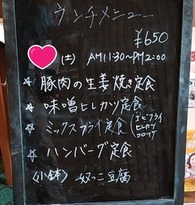 ランチメニュー
¥650
(土) AM11:30~PM2:00
☆ 豚肉の生姜焼き定食
☆ 味噌ヒレカツ定食
☆ ミックスフライ定食
エビフライ
ヒレカツ
コロッケ
☆ ハンバーグ定食
(小鉢) 奴っこ豆腐